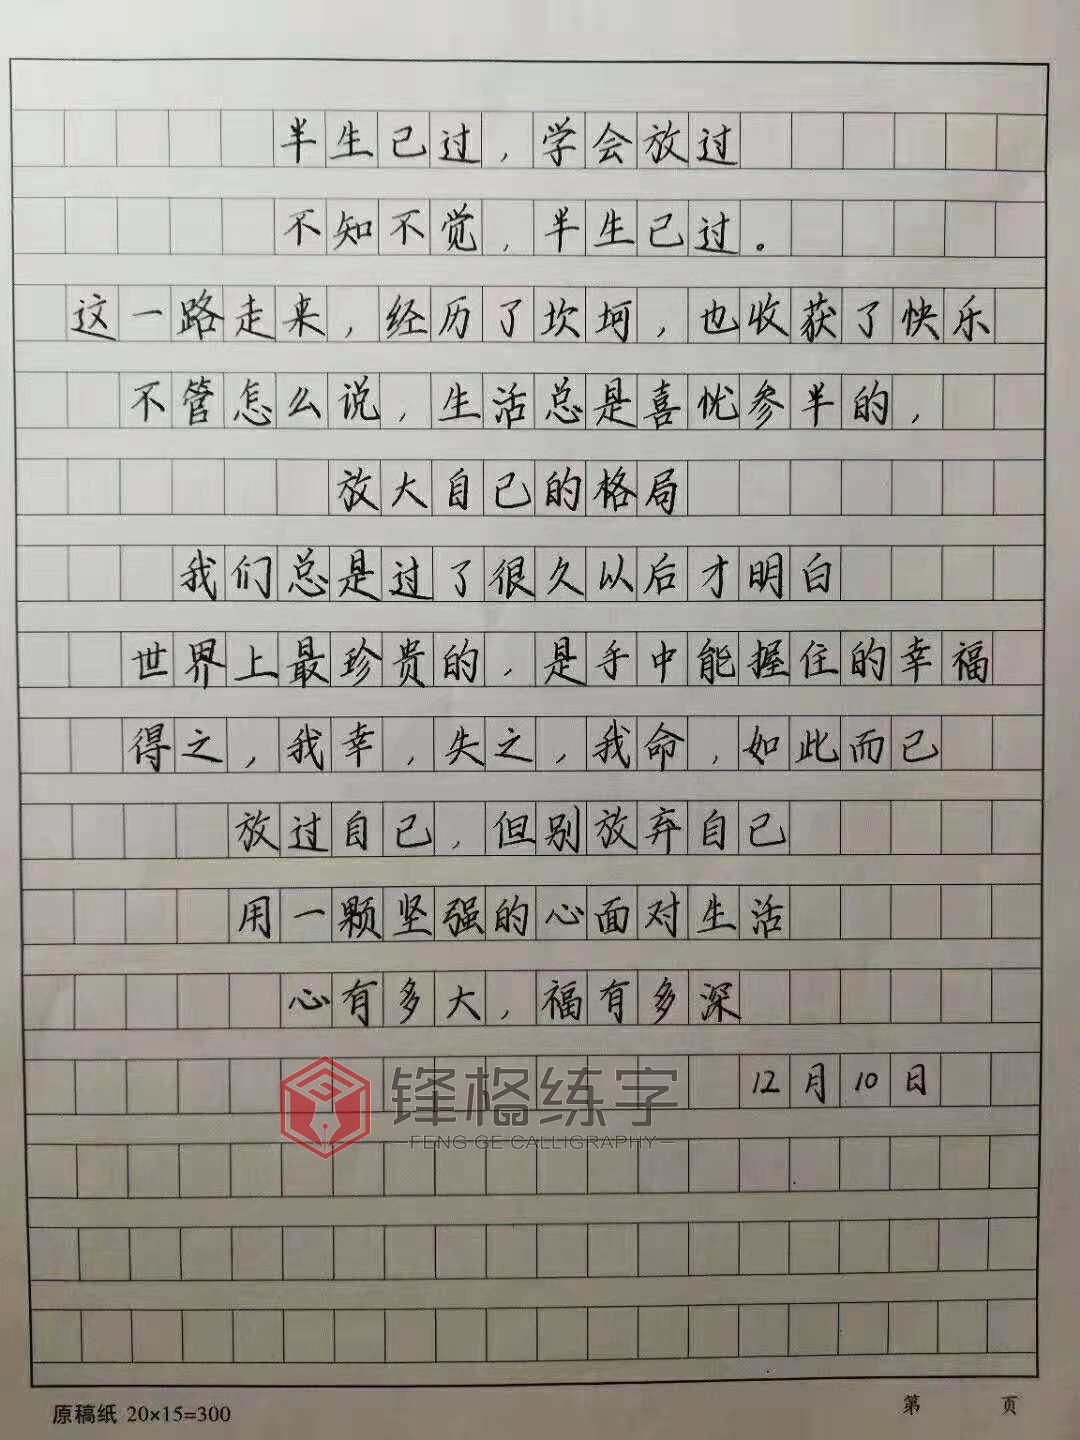 半生已过，学会放过
不知不觉，半生已过。
这一路走来，经历了坎坷，也收获了快乐
不管怎么说，生活总是喜忧参半的，
放大自己的格局
我们总是过了很久以后才明白
世界上最珍贵的，是手中能握住的幸福
得之，我幸，失之，我命，如此而已
放过自己，但别放弃自己
用一颗坚强的心面对生活
心有多大，福有多深
12月10日
锋格练字
FENG GE CALLIGRAPHY
原稿纸 20×15=300
第 页